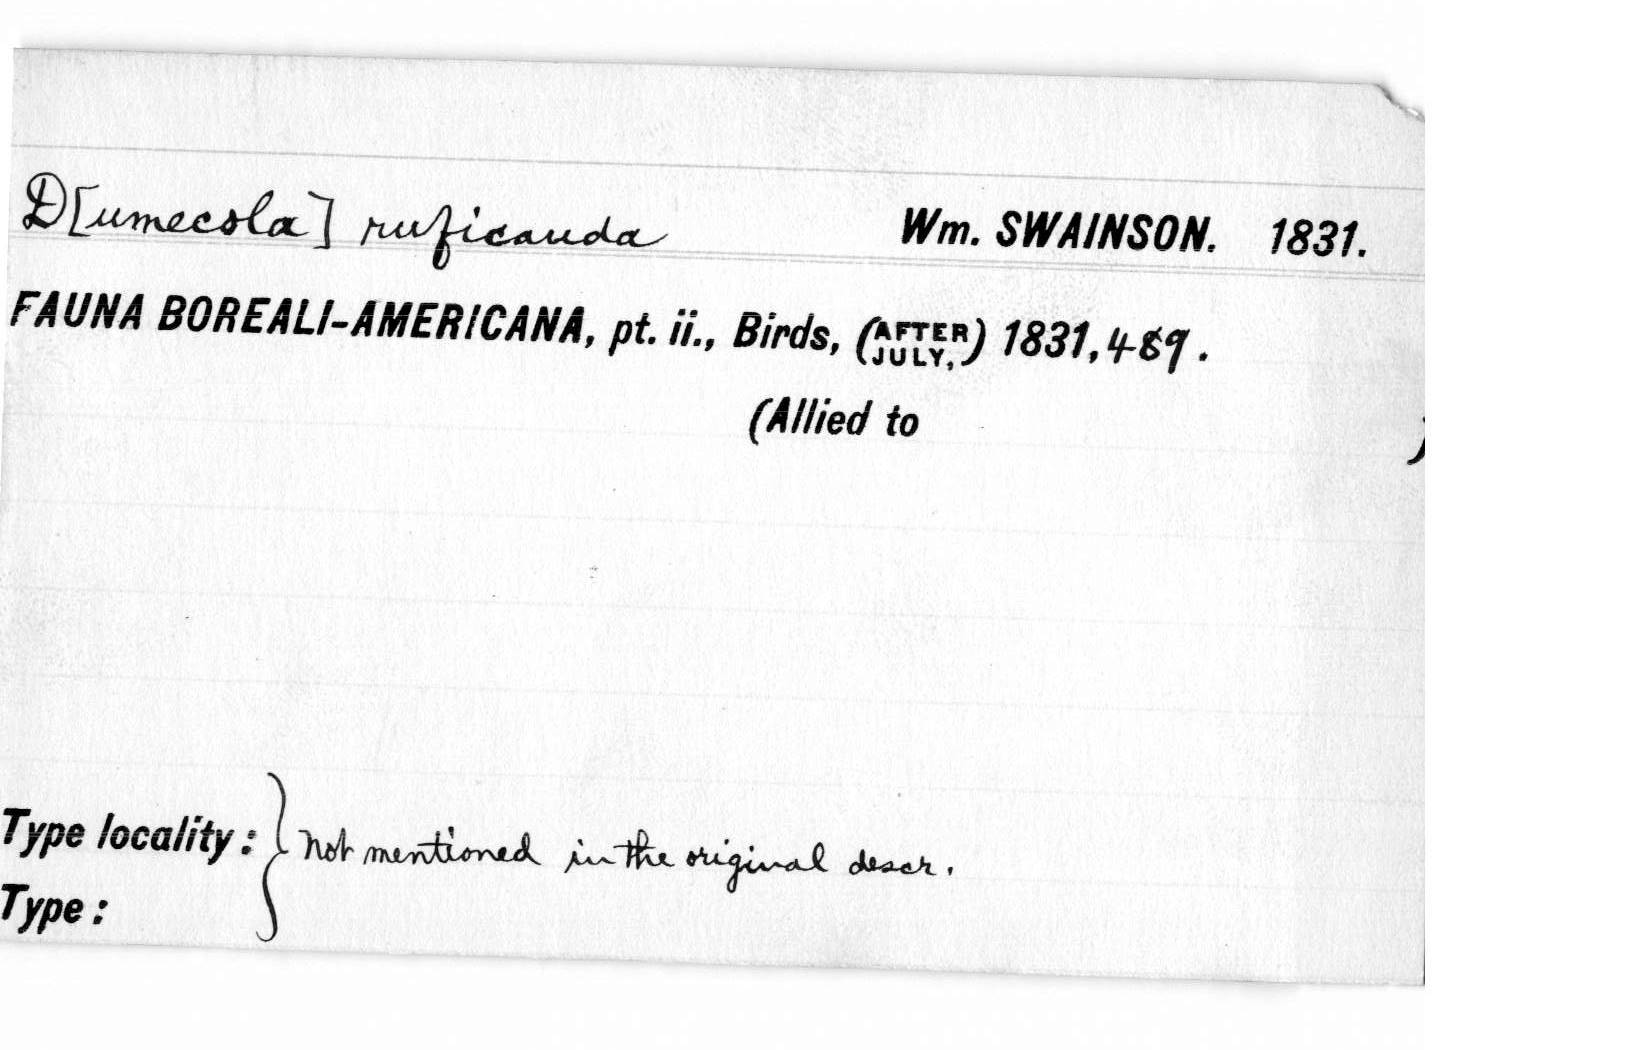 D[umecola] ruficauda Wm. SWAINSON. 1831.
FAUNA BOREALI-AMERICANA, pt. ii., Birds, (AFTER JULY,) 1831, 489.
(Allied to )
Type locality: } not mentioned in the original descr.
Type: